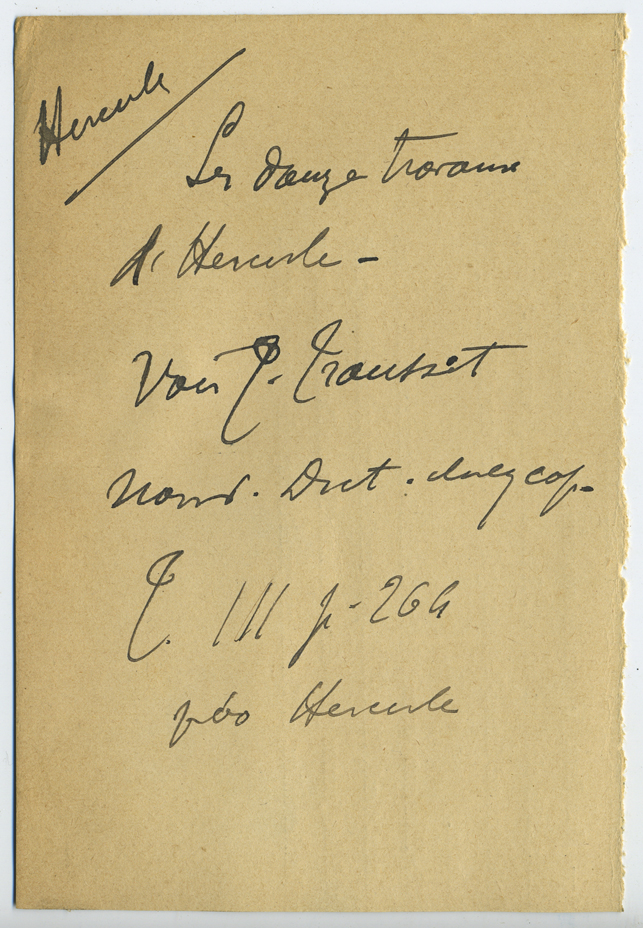 Hercule
Les douze travaux
d'Hercule -
Voir J. Trousset
Nouv. Dict. encycop.
T. III p. 264
Hercule